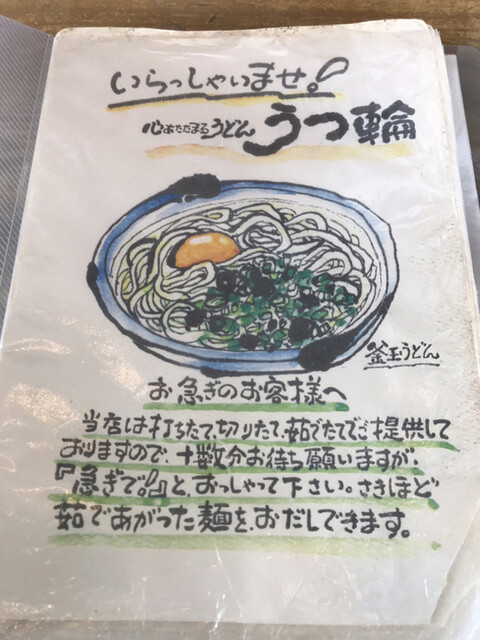 いらっしゃいませ。!
心あたたまるうどん うつ輪
釜玉うどん
お急ぎのお客様へ
当店は打ちたて、切りたて、茹でたてでご提供して
おりますので、十数分お待ち願いますが、
『急ぎで!!』と、おっしゃって下さい。さきほど
茹であがった麺を、おだしできます。